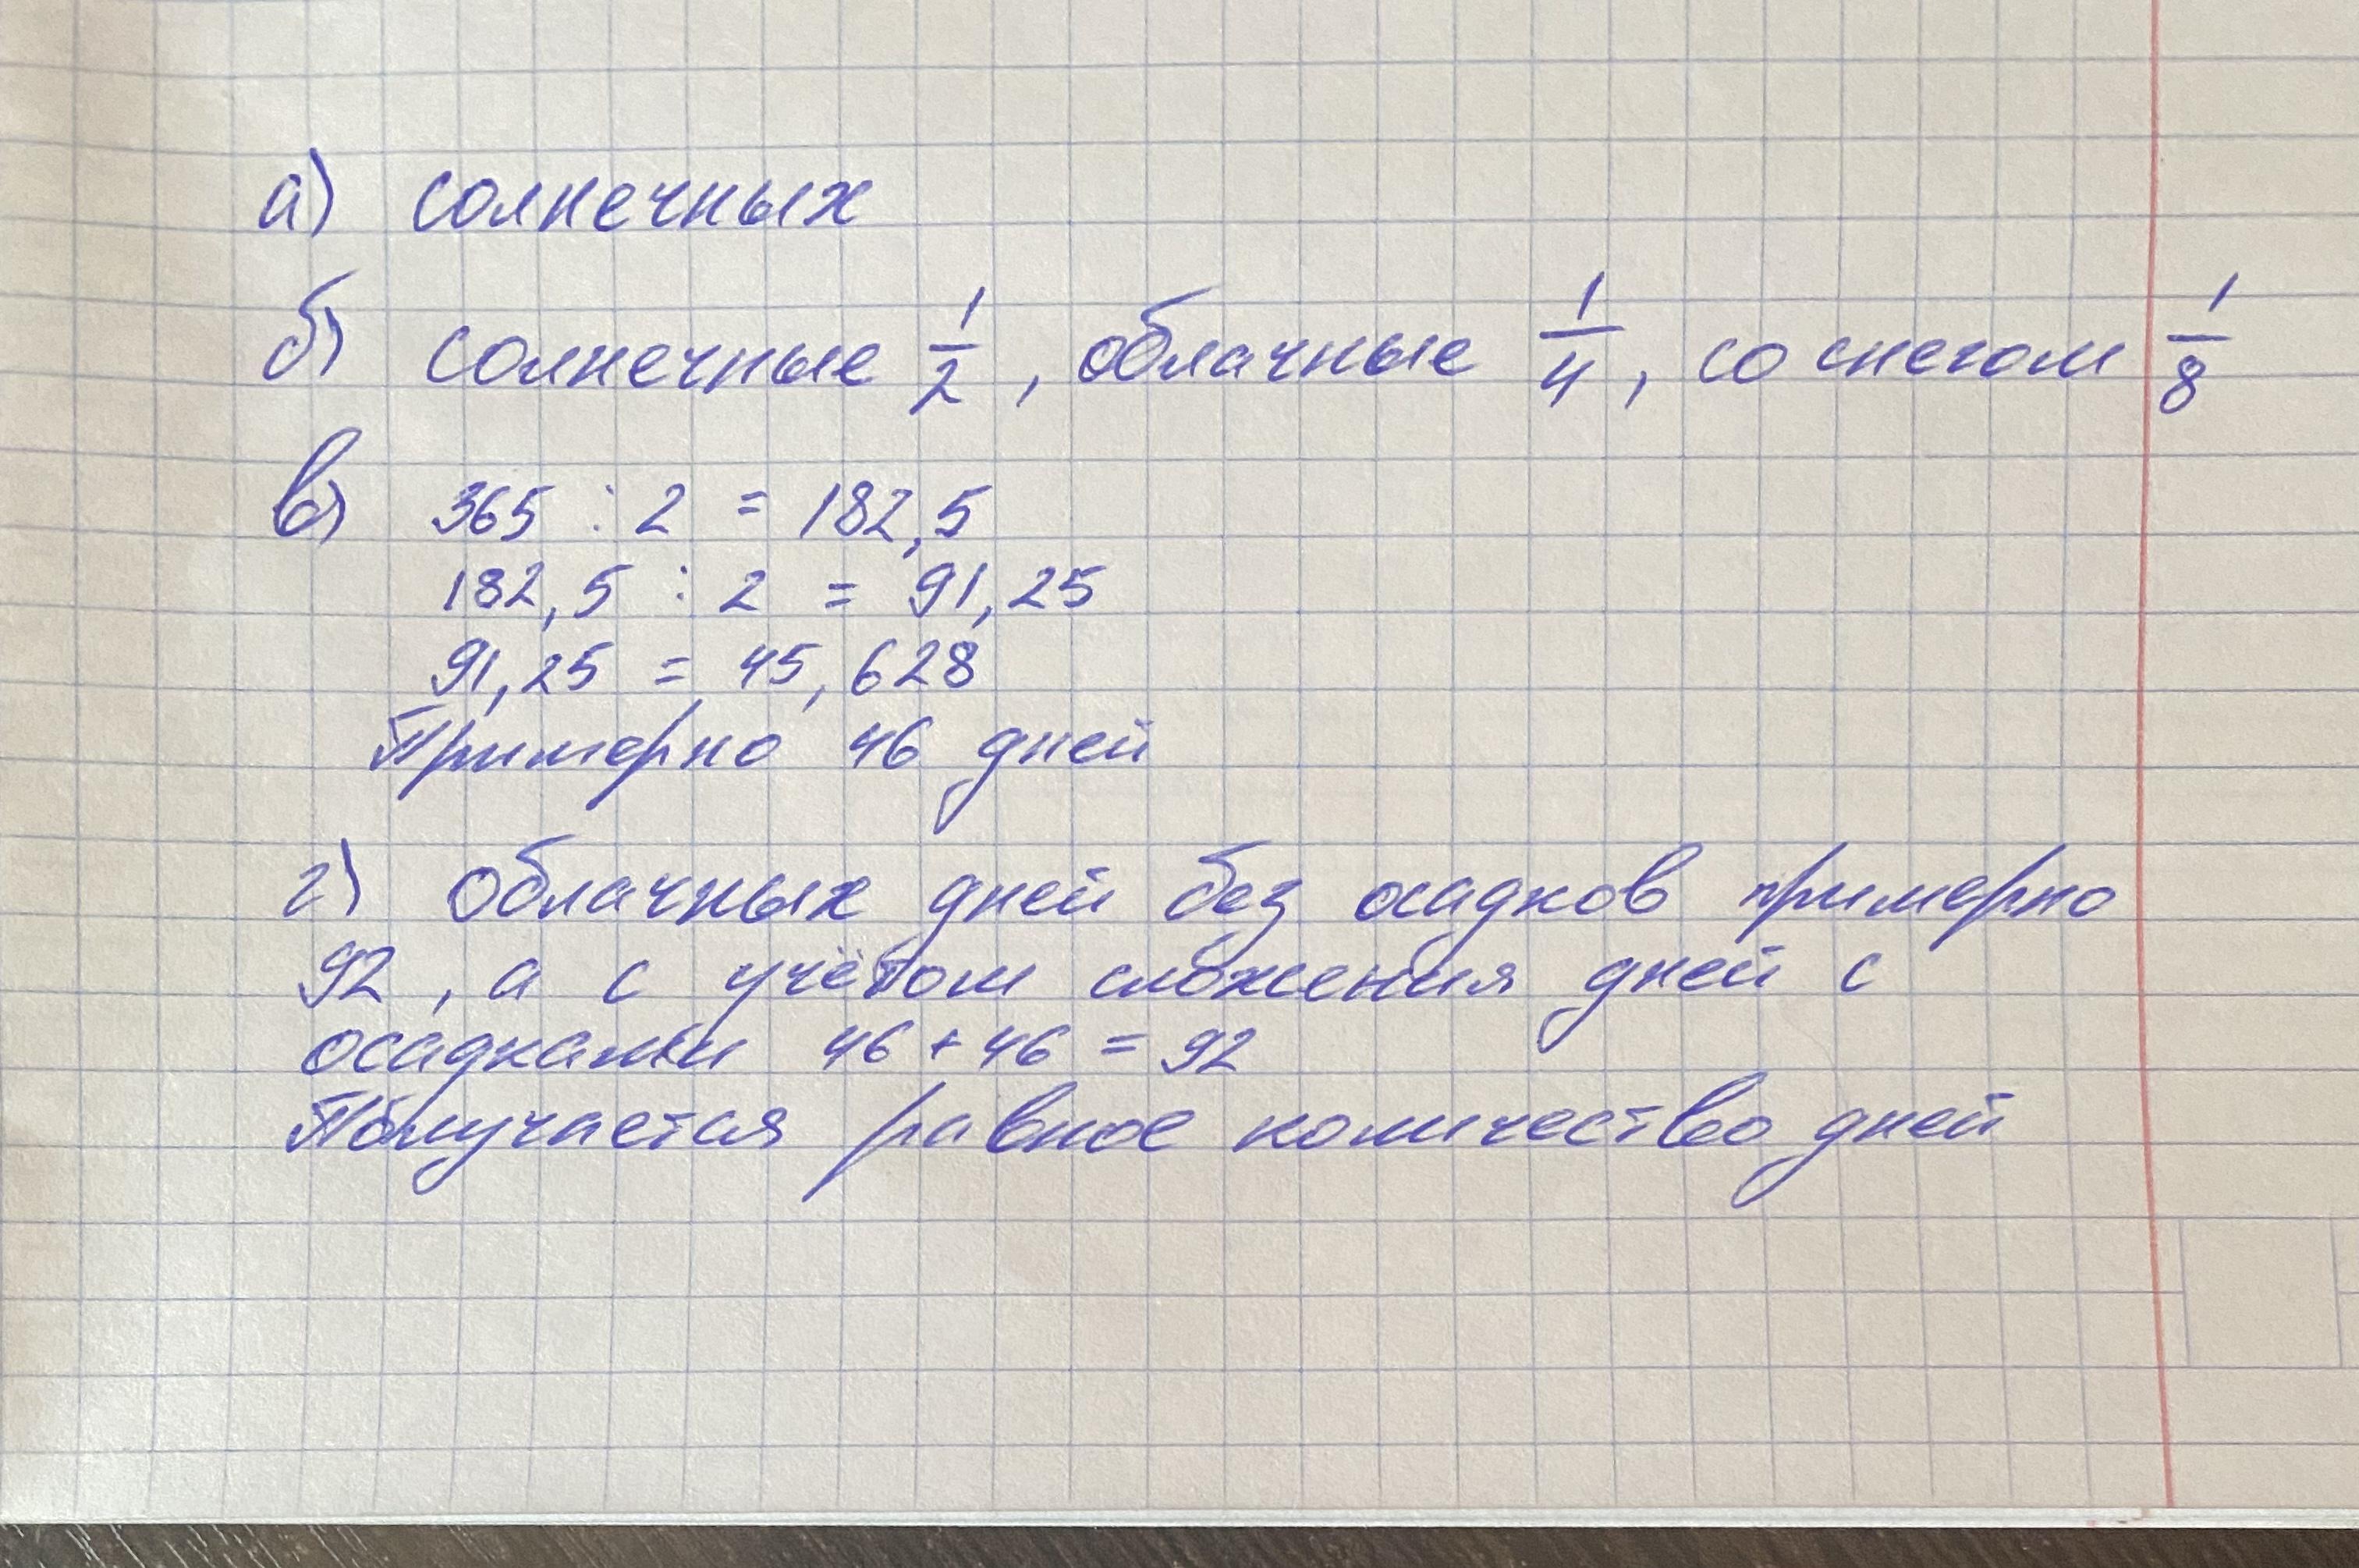 а) солнечных
б) солнечные 1/2, облачные 1/4, со снегом 1/8
в) 365 : 2 = 182,5
182,5 : 2 = 91,25
91,25 = 45,628
Примерно 46 дней
г) Облачных дней без осадков примерно
92, а с учётом сложения дней с
осадками 46 + 46 = 92
Получается равное количество дней